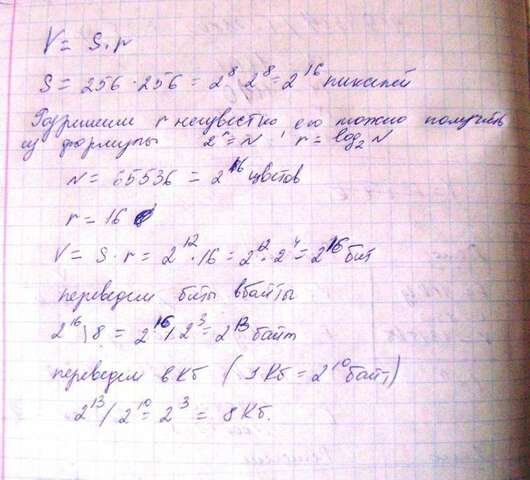 V = S·r
S = 256·256 = 2^8·2^8 = 2^16 пикселей
r неизвестно его можно получить
из формулы 2^r = N, r = log₂N
N = 65536 = 2^16 цветов
r = 16
V = S·r = 2^12·16 = 2^12·2^4 = 2^16 бит
переведем биты в байты
2^16\8 = 2^16/2^3 = 2^13 байт
переведем в Кб (1 Кб = 2^10 байт)
2^13/2^10 = 2^3 = 8 Кб.